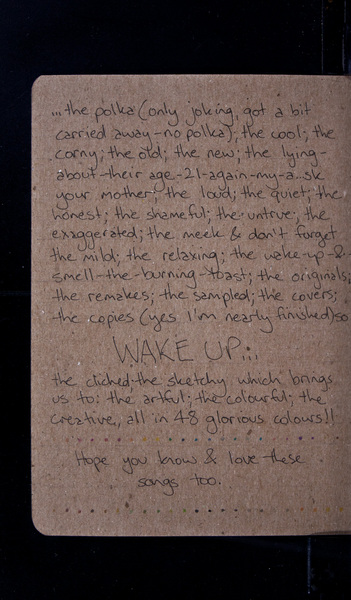 ...the polka (only joking, got a bit
carried away - no polka); the cool; the
corny; the old; the new; the lying-
about-their age-21-again-my-a..sk
your mother; the loud; the quiet; the
honest; the shameful; the untrue; the
exaggerated; the meek & don't forget
the mild; the relaxing; the wake-up-&-
smell-the-burning-toast; the originals;
the remakes; the sampled; the covers;
the copies (yes I'm nearly finished) so
WAKE UP...
the cliched-the sketchy which brings
us to; the artful; the colourful; the
creative,, all in 48 glorious colours!!
Hope you know & love these
songs too.